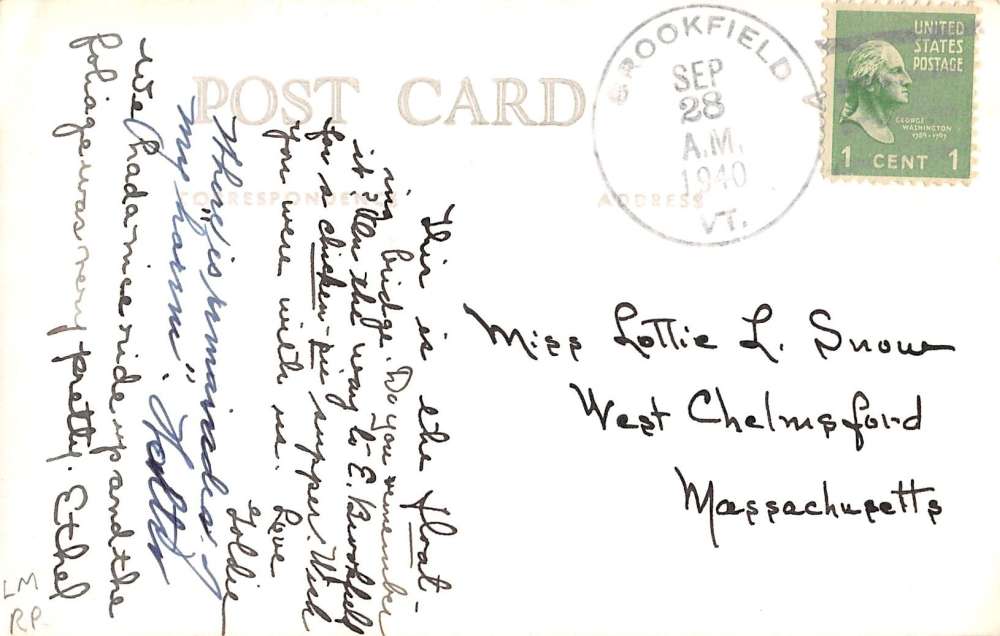 POST CARD
CORRESPONDENCE
ADDRESS
BROOKFIELD
SEP
28
A.M.
1940
VT.
UNITED
STATES
POSTAGE
GEORGE
WASHINGTON
1789-1797
1 CENT 1
Miss Lottie L. Snow
West Chelmsford
Massachusetts
This is the float-
ing bridge. Do you remember
it? On the way to E. Brookfield
for a chicken-pie supper. Wish
you were with us.
Love
Goldie
my
We had a nice ride up and the
foliage was very pretty. Ethel
LM
RP.